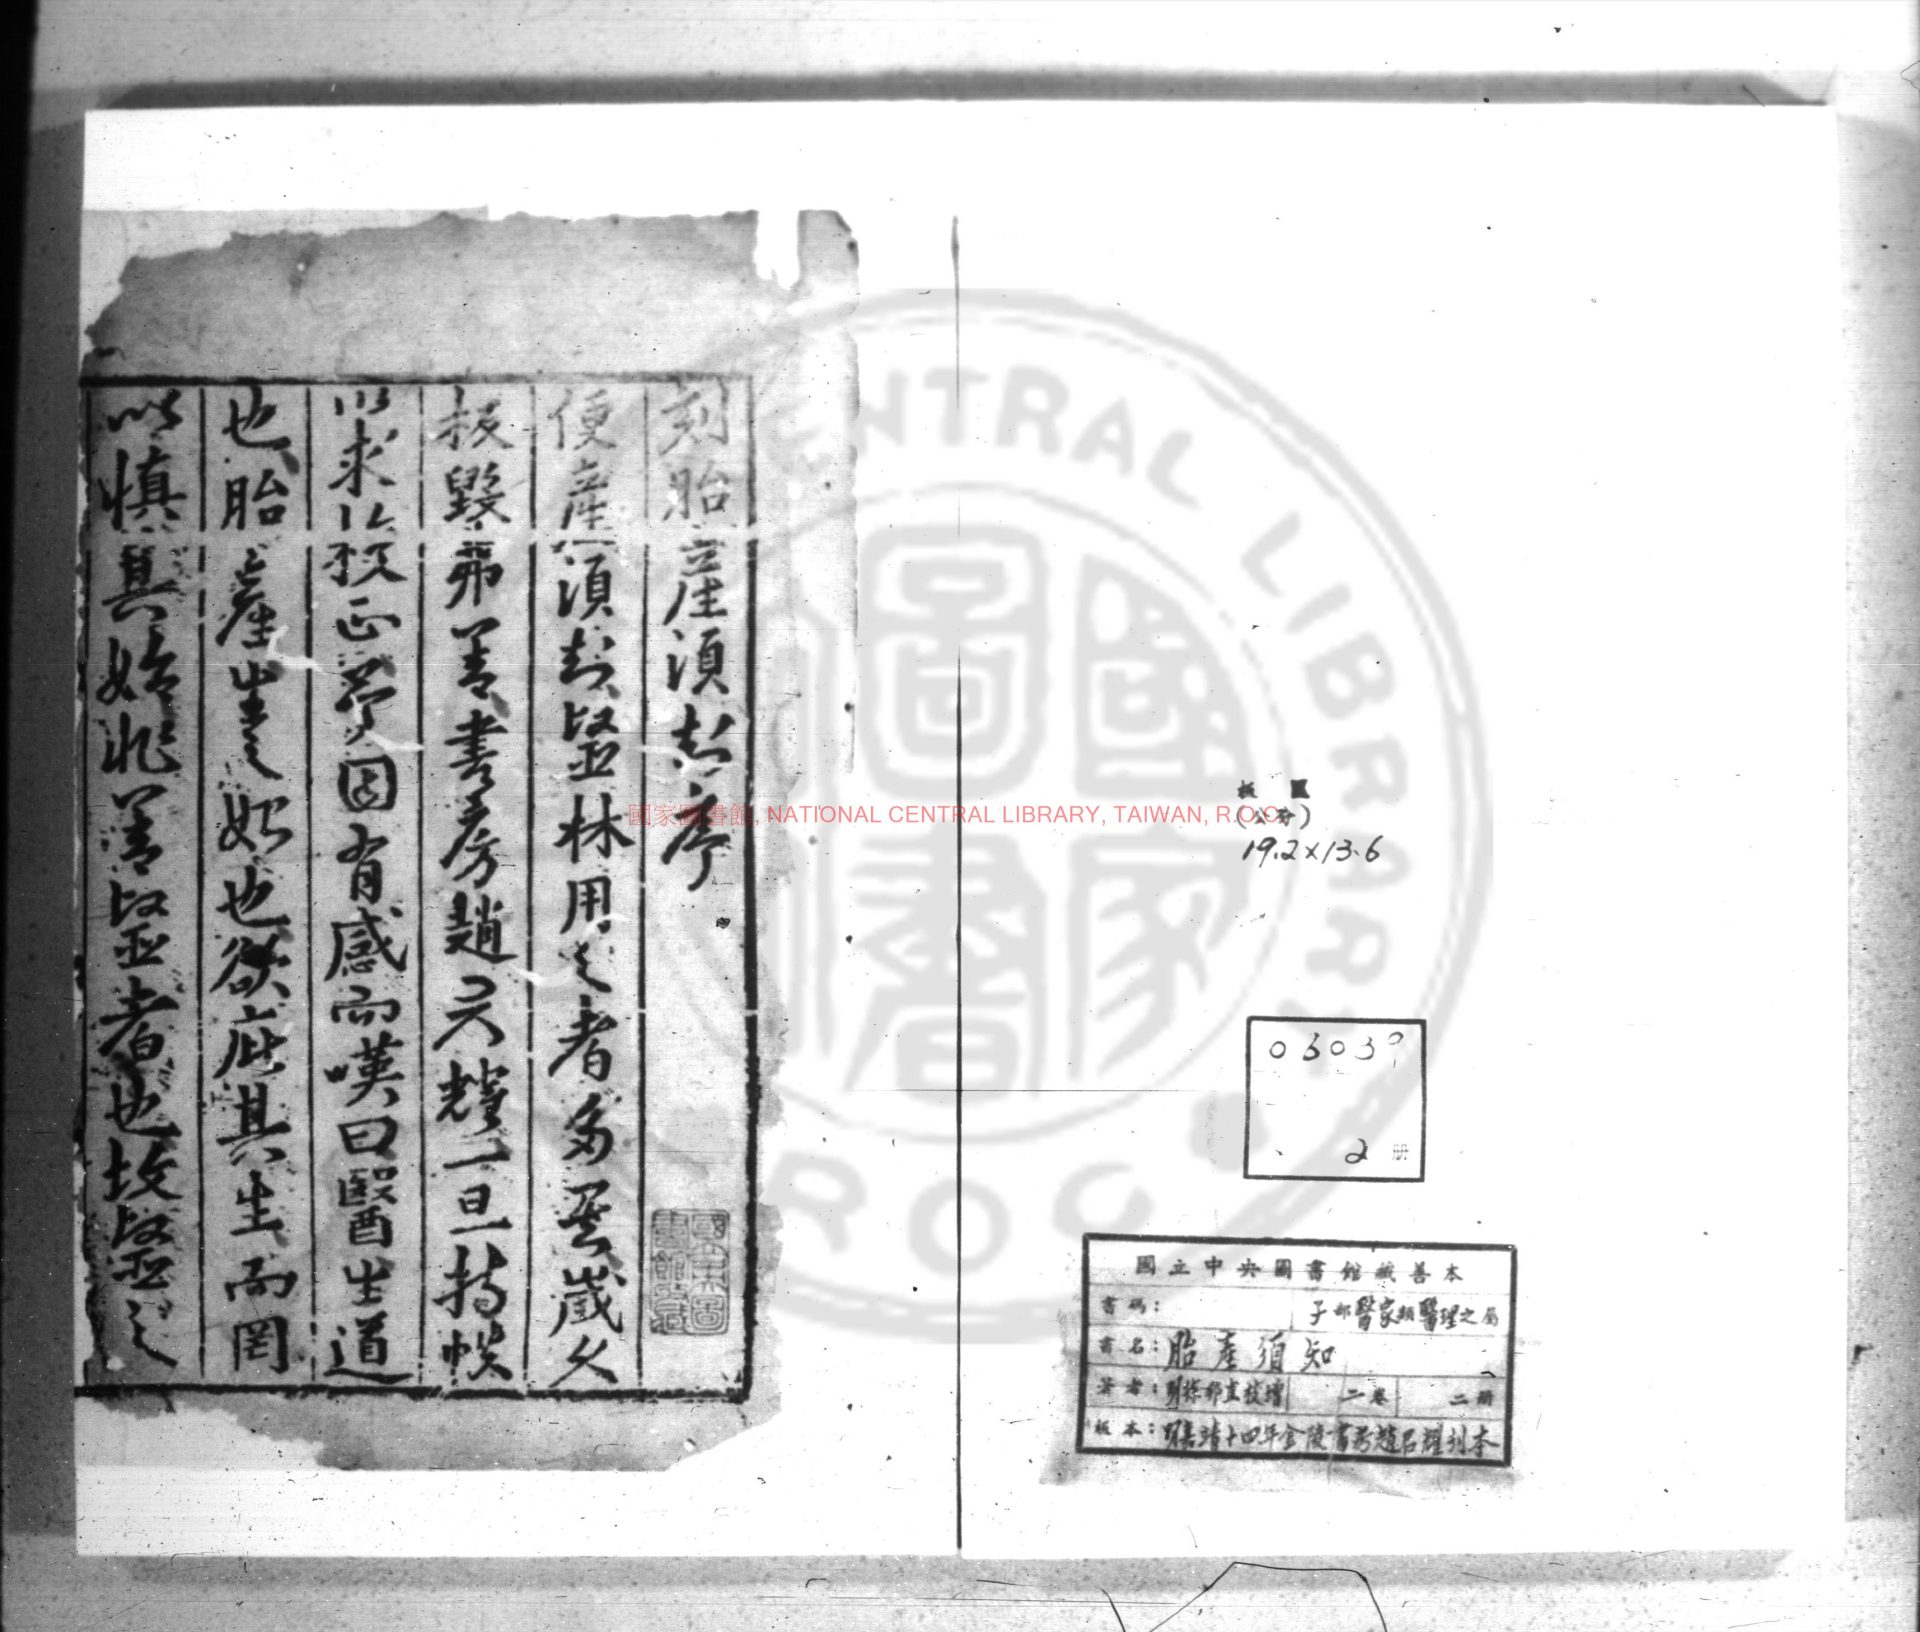 刻胎產須知序
便產須知毉林用之者多矣歲久
板毀弗善書房趙君耀一旦持帙
以求校正于余因有感而嘆曰醫生道
也胎產生之始也欲庇其生而罔
以慎其始非善毉者也故毉之
國家圖書館, NATIONAL CENTRAL LIBRARY, TAIWAN, R.O.C
板 匡
(公分)
19.2×13.6
0303
2 冊
國立中央圖書館藏善本
書碼: 子部醫家類醫理之屬
書名:胎產須知
著者: 二卷 二冊
板本:明嘉靖十四年金陵書房趙君耀刊本
國家圖書館
CENTRAL LIBRARY
R O C